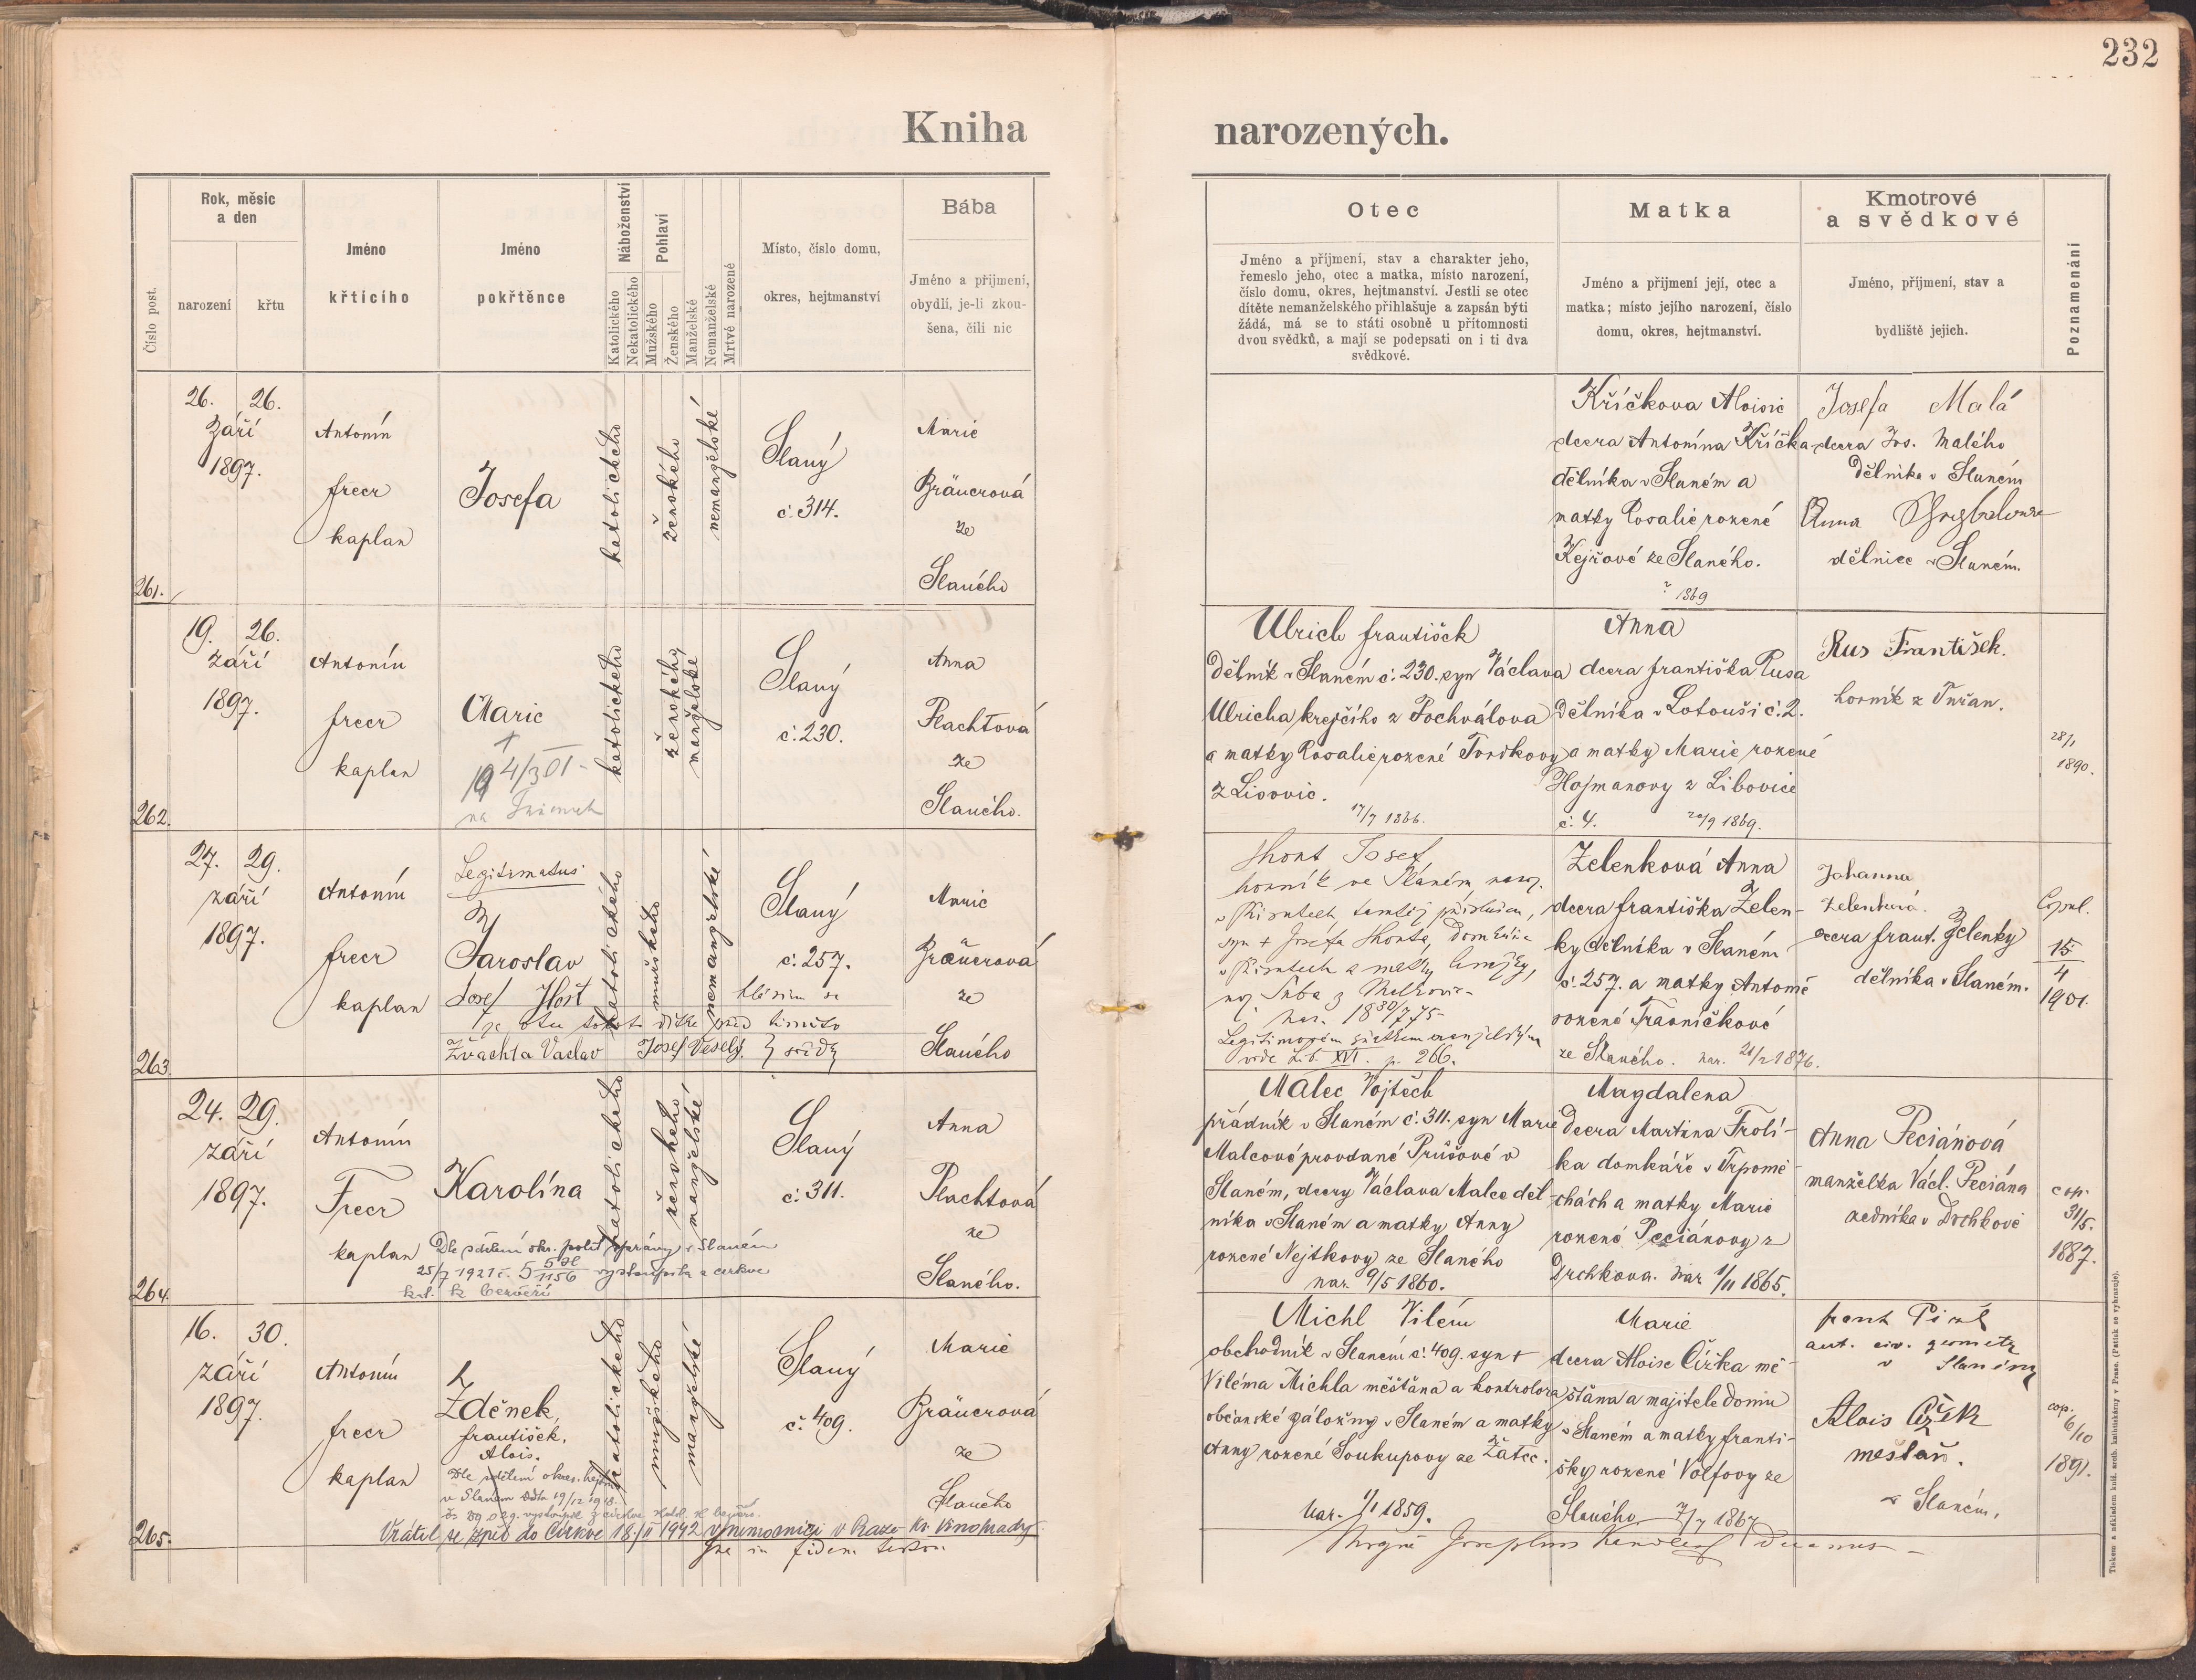 232
Kniha
narozených.
Číslo post.
Rok, měsíc
a den
narození
křtu
Jméno
křticího
Jméno
pokřtěnce
Náboženství
Katolického
Nekatolického
Pohlaví
Mužského
Ženského
Manželské
Nemanželské
Mrtvě narozené
Místo, číslo domu,
okres, hejtmanství
Bába
Jméno a přijmení,
obydlí, je-li zkou-
šena, čili nic
Otec
Jméno a příjmení, stav a charakter jeho,
řemeslo jeho, otec a matka, místo narození,
číslo domu, okres, hejtmanství. Jestli se otec
dítěte nemanželského přihlašuje a zapsán býti
žádá, má se to státi osobně u přítomnosti
dvou svědků, a mají se podepsati on i ti dva
svědkové.
Matka
Jméno a přijmení její, otec a
matka; místo jejího narození, číslo
domu, okres, hejtmanství.
Kmotrové
a svědkové
Jméno, příjmení, stav a
bydliště jejich.
Poznamenání
261.
26. 26.
Září
1897.
Antonín
Frecr
kaplan
Josefa
katolického
ženského
nemanželské
Slaný
č. 314.
Marie
Bräuerová
ze
Slaného
Kříčkova Aloisie
dcera Antonína Kříčka
dělníka v Slaném a
matky Rosalie rozené
Kejřové ze Slaného.
1869
Josefa Malá
dcera Jos. Malého
dělníka v Slaném
Anna
dělnice v Slaném.
262.
19. 26.
září
1897.
Antonín
Frecr
kaplan
Marie
+
katolického
ženského
manželské
Slaný
č. 230.
Anna
Plachtová
ze
Slaného.
Ulrich František
dělník v Slaném č. 230. syn Václava
Ulricha krejčího z Pochválova
a matky Rosalie rozené Tvrdkovy
z Lisovic.
17/7 1866.
Anna
dcera Františka Rusa
dělníka v Lotouši č. 2.
a matky Marie rozené
Hojmanovy z Libovice
č. 4. 20/9 1869.
Rus František.
horník z Tuřan.
28/1
1890.
263.
27. 29.
září
1897.
Antonín
Frecr
kaplan
Legitimatus
Jaroslav
Josef Hošt hlásím se
za otce tohoto dítka před těmito
Žvachta Vaclav Josef Veselý } svědky
katolického
mužského
nemanželské
Slaný
č. 257.
Marie
Bräuerová
ze
Slaného
Josef,
horník ve Slaném, naroz.
nar. 1880/7 75
Legitimován sňatkem
vide Lib. XVI. p. 266.
Zelenková Anna
dcera Františka Zelen-
ky dělníka v Slaném
č. 257. a matky Antonie
rozené Travníčkové
ze Slaného. nar. 21/2 1876.
Johanna
Zelenková.
dcera Frant. Zelenky
dělníka v Slaném.
Copul.
15
4
1901.
264.
24. 29.
září
1897.
Antonín
Frecr
kaplan
Karolína
Dle sdělení okr. polit. správy v Slaném
25/7 1921 č. vystoupila z církve
kat. k
katolického
ženského
manželské
Slaný
č. 311.
Anna
Plachtová
ze
Slaného.
Malec Vojtěch
přádník v Slaném č. 311. syn Marie
Malcové provdané Průšové v
Slaném, dcery Václava Malce děl-
níka v Slaném a matky Anny
rozené Nejtkovy ze Slaného
nar. 9/5 1860.
Magdalena
dcera Martina Frolí-
ka domkáře v Trpomě-
chách a matky Marie
rozené Peciánovy z
Drchkova. nar 1/11 1865.
Anna Peciánová
manželka Václ. Peciána
zedníka v Drchkově
cop.
31/5.
1887.
265.
16. 30.
září
1897.
Antonín
Frecr
kaplan
Zdeněk,
František,
Alois.
Dle sdělení okres. hejtm.
v Slaném ddto 19/12 1918.
vystoupil z církve katol.
Vrátil se zpět do Církve 18./II 1942 v nemocnici v Praze - Kr. Vinohrady.
in fidem
katolického
mužského
manželské
Slaný
č. 409.
Marie
Bräuerová
ze
Slaného
Michl Vilém
obchodník v Slaném č. 409. syn +
Viléma Michla měšťana a kontrolora
občanské záložny v Slaném a matky
Anny rozené Soukupovy ze Žatec.
Nar. 1/1 1859.
Marie
dcera Aloise Čížka mě-
šťana a majitele domu
v Slaném a matky Franti-
šky rozené Volfovy ze
Slaného 7/7 1867
Frant
aut. civ. geometr
v Slaném
Alois Čížek
mešťan.
v Slaném.
cop.
6/10
1891.
Tiskem a nákladem kníž. arcib. knihtiskárny v Praze. (Patisk se vyhrazuje).